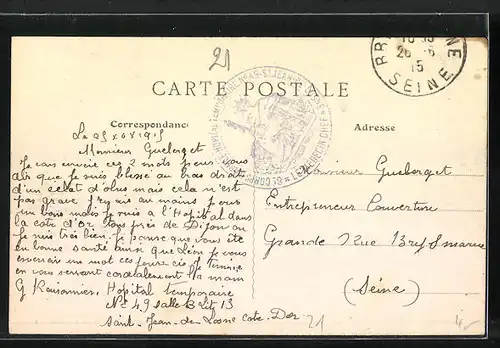 21
CARTE POSTALE
Correspondance
Adresse
SEINE
15
Le 25 x 6 x 1915
Monsieur Gueborget
Je vous envoie ces 2 mots pour vous
dire que je suis blessé au bras droit
d'un eclat d'obus mais cela n'est
pas grave j'ry ais au moins pour
un bons mois je suis a l'Hopital dans
la cote d'Or tous près de Dijon ou
je suis très bien. Je pense que vous ete
en bonne santé ainsi que Léon je vous
envoi un mot ces jours cis je termine
en vous serrant cordialement la main
Hopital temporaire
No 49 Salle B Lit 13
Saint-Jean-de Losne cote-Dor
Monsieur Gueborget
Entrepreneur Couverture
Grande Rue Bry S marne
(Seine)
21